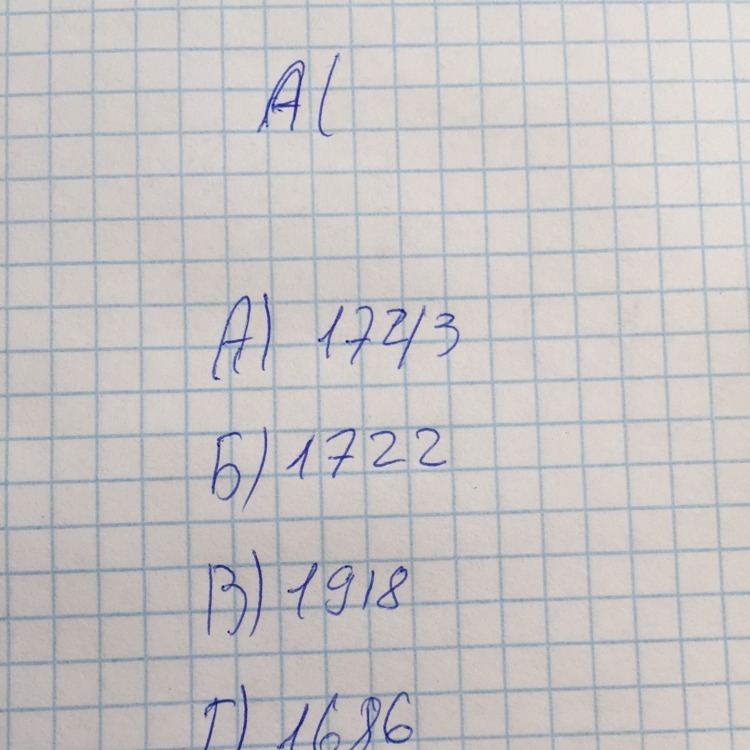 А(
А) 1743
Б) 1722
В) 1918
Г) 1686